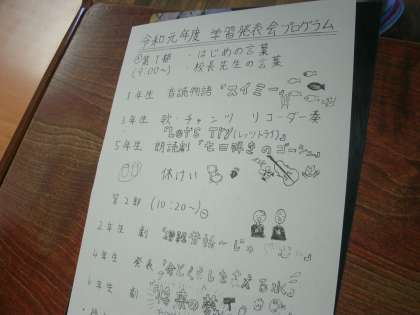 令和元年度 学習発表会プログラム
第1部 ・はじめの言葉
(9:00~) ・校長先生の言葉
1年生 音読物語『スイミー』
3年生 歌・チャンツ リコーダー奏
『Let's Try(レッツトライ)』
5年生 朗読劇『セロ弾きのゴーシュ』
休けい
第2部 (10:20~)
2年生 劇
4年生 発表 水』
6年生 劇